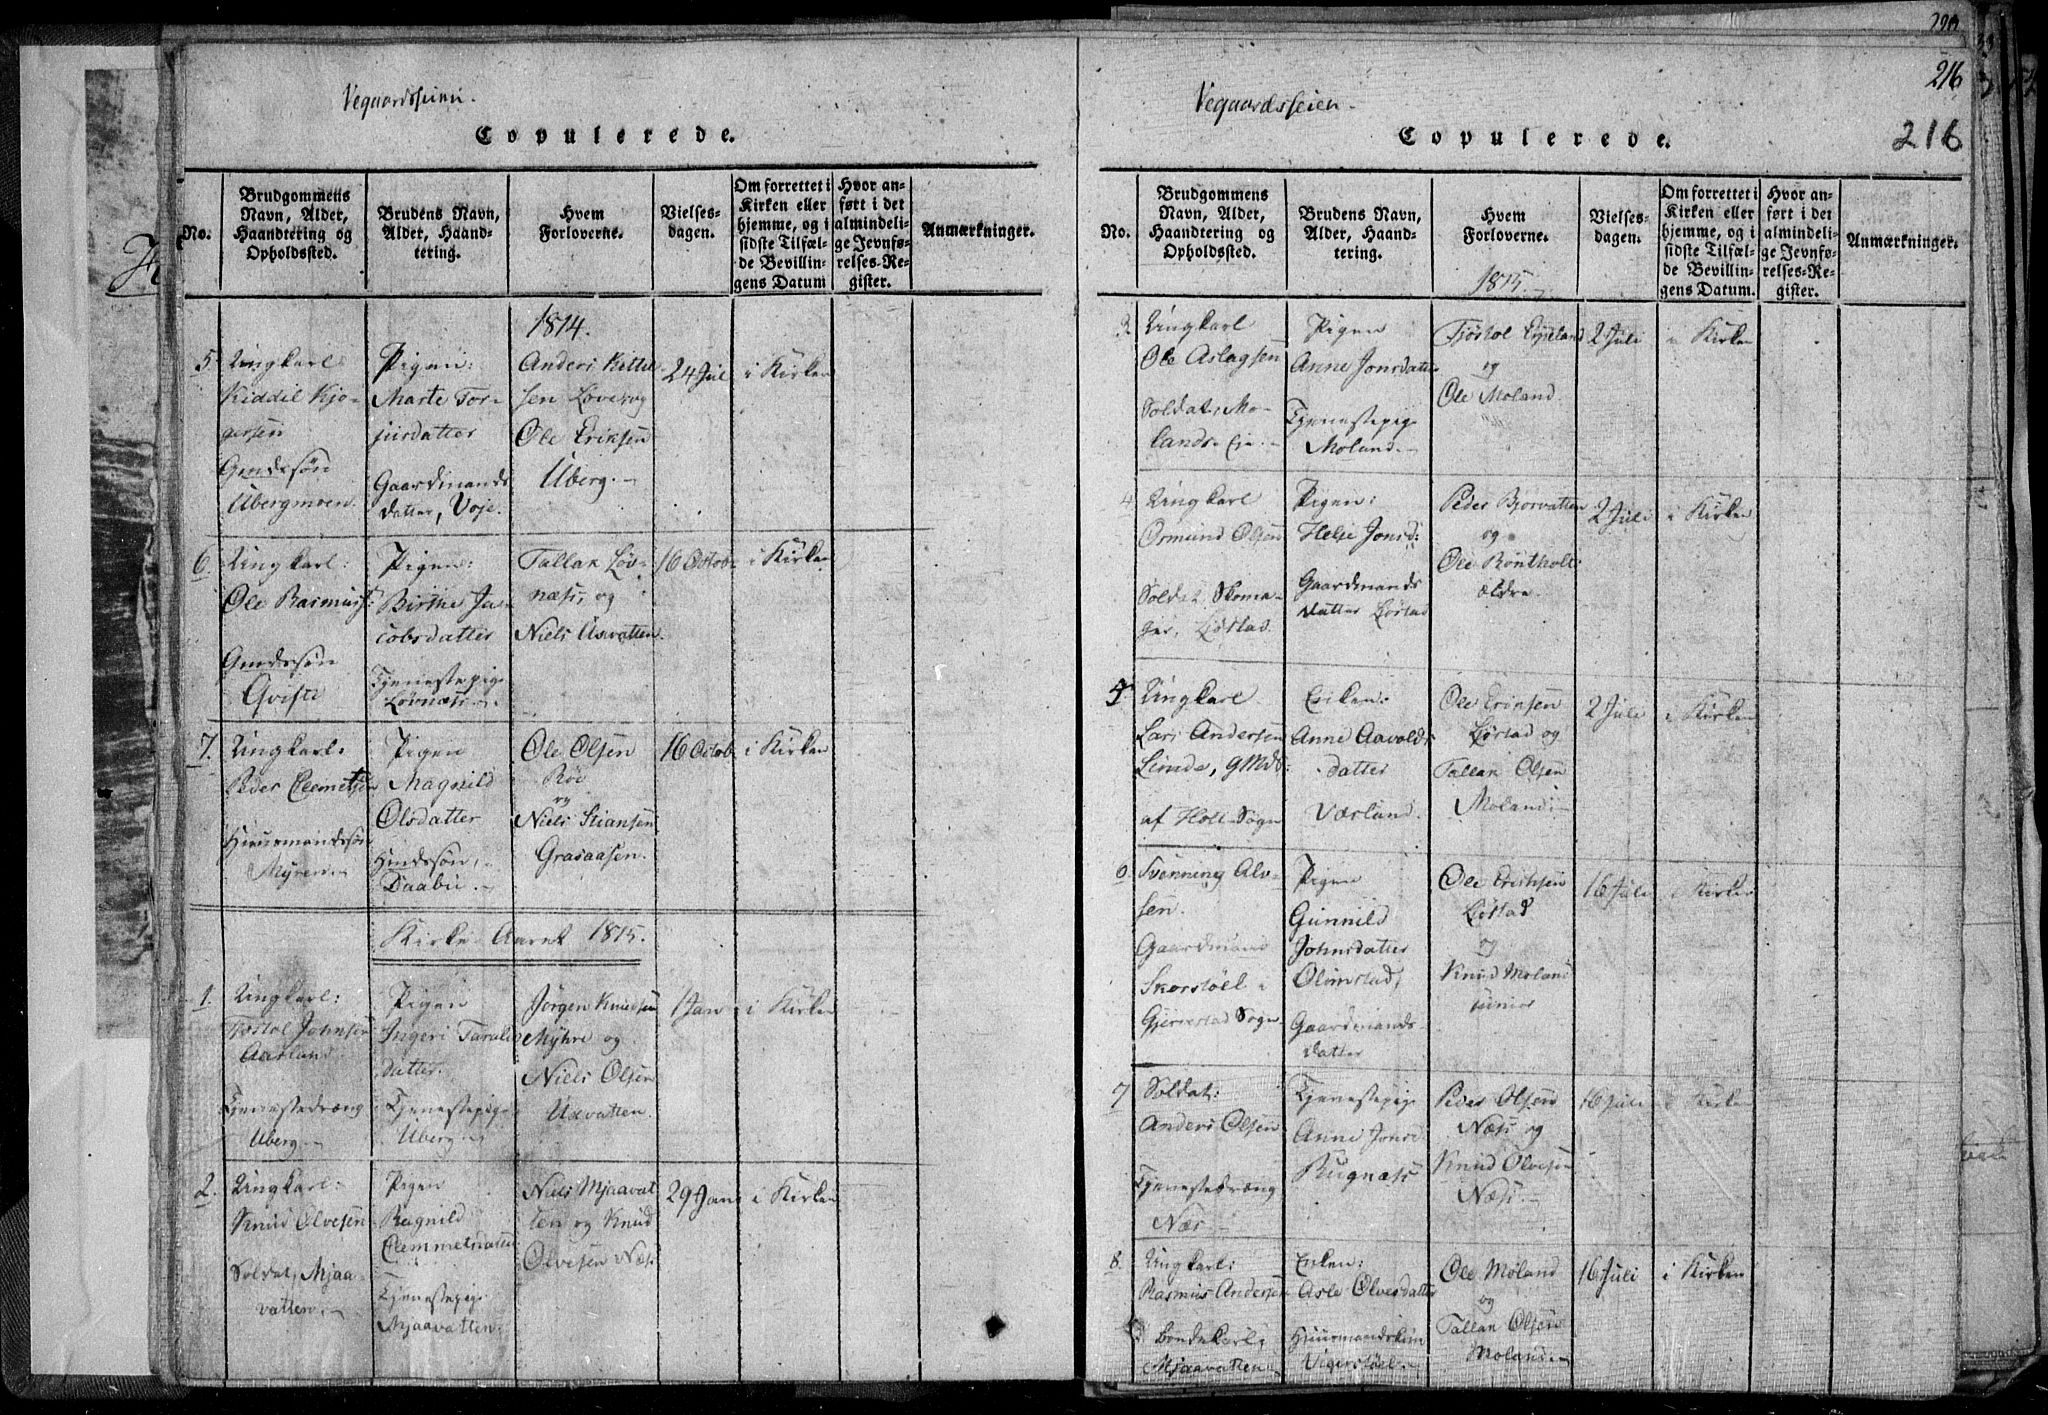 Vegaardsheien.
Copulerede.
No.
Brudgommens
Navn, Alder,
Haandtering og
Opholdssted.
Brudens Navn,
Alder, Haand-
tering.
Hvem
Forloverne.
Vielses-
dagen.
Om forrettet i
Kirken eller
hjemme, og i
sidste Tilfæl-
de Bevillin-
gens Datum
Hvor an-
ført i det
almindeli-
ge Jevnfø-
relses-Re-
gister.
Anmærkninger.
1814.
5.
Ungkarl:
Kiddil Kjo-
gersen
Gmdssøn
Ubergmoen.
Pigen:
Marte Tor-
jusdatter
Gaardmands
datter, Voje.
Anders Kittel-
sen Løves og
Ole Eriksen
Uberg.-
24 Jul
i Kirken
6.
Ungkarl:
Ole Rasmus:
Gmdssøn
Qviste
Pigen:
Birthe Ja-
cobsdatter
Tjenestepige
Løvnæs.-
Tallak Løv-
næs, og
Niels Uxvatten.
16 Octobr
i Kirken
7.
Ungkarl:
Peder Clemetsen
Huusmandssøn
Myren.-
Pigen
Magnild
Olsdatter
Hmdssøn,
Daabu.-
Ole Olsen
Röe
og
Niels Stiansen
Grasaasen.
16 Octob
i Kirken
Kirke Aaret 1815.
1.
Ungkarl:
Tostol Johnsen
Aasland.
Tjenestedræng
Uberg.-
Pigen
Ingeri Tarals
datter.
Tjenestepige
Uberg.-
Jörgen Knudsen
Myhre og
Niels Olsen
Uxvatten.
1 Jan
i Kirken
2.
Ungkarl:
Knud Olvesen
Soldat, Mjaa-
vatten.-
Pigen
Ragnild
Clemmetsdatter
Tjenestepige
Mjaavatten.
Niels Mjaavat
ten og Knud
Olvesen Næs.
29 Jan
i Kirken
216
216
Vegaardsheien.
Copulerede.
No.
Brudgommens
Navn, Alder,
Haandtering og
Opholdssted.
Brudens Navn,
Alder, Haand-
tering.
Hvem
Forloverne.
1815.
Vielses-
dagen.
Om forrettet i
Kirken eller
hjemme, og i
sidste Tilfæl-
de Bevillin-
gens Datum.
Hvor an-
ført i det
almindeli-
ge Jevnfø-
relses-Re-
gister.
Anmærkninger.
3.
Ungkarl
Ole Aslagsen
Soldat, Mo-
lands-Eje.-
Pigen
Anne Jonsdatter
Tjenestepige
Moland.-
Tjöstol Espeland
og
Ole Moland.
2 Juli
i Kirken
4
Ungkarl
Ormund Olsen
Soldat, Skoma-
ger, Ljøstad.
Pigen:
Helje Jonsd:
Gaardmands
datter Ljøstad
Peder Bjorvatten
og
Ole Röntholt
ældre.
2 Juli
i Kirken
5
Ungkarl
Lars Andersen
Linde, gMds:
af Holt-Sogn
Enken:
Anne Aavolds
datter
Værland.
Ole Eriksen
Ljøstad og
Tallak Olsen
Moland.-
2 Juli
i Kirken
6
Svenning Alv-
sen.
Gaardmand
Skorstöel i
Gjerrestad Sogn
Pigen
Gunnild
Johnsdatter
Olimstad,
Gaardmands-
datter
Ole Eriksen
Ljøstad
og
Knud Moland
junior
16 Juli
i Kirken
7
Soldat:
Anders Olsen
Tjenestedræng
Næs
Tjenestepige
Anne Jonsd
Rugnæs
Peder Olsen
Næs og
Knud Olvesen
Næs.-
16 Juli
i Kirken
8.
Ungkarl:
Rasmus Andersen
Bondekarl,
Mjaavatten.
Enken:
Asle Olvesdatter
Huusmandskone
Vigerstöl.-
Ole Moland
og
Tallak Olsen
Moland.-
16 Juli
i Kirken